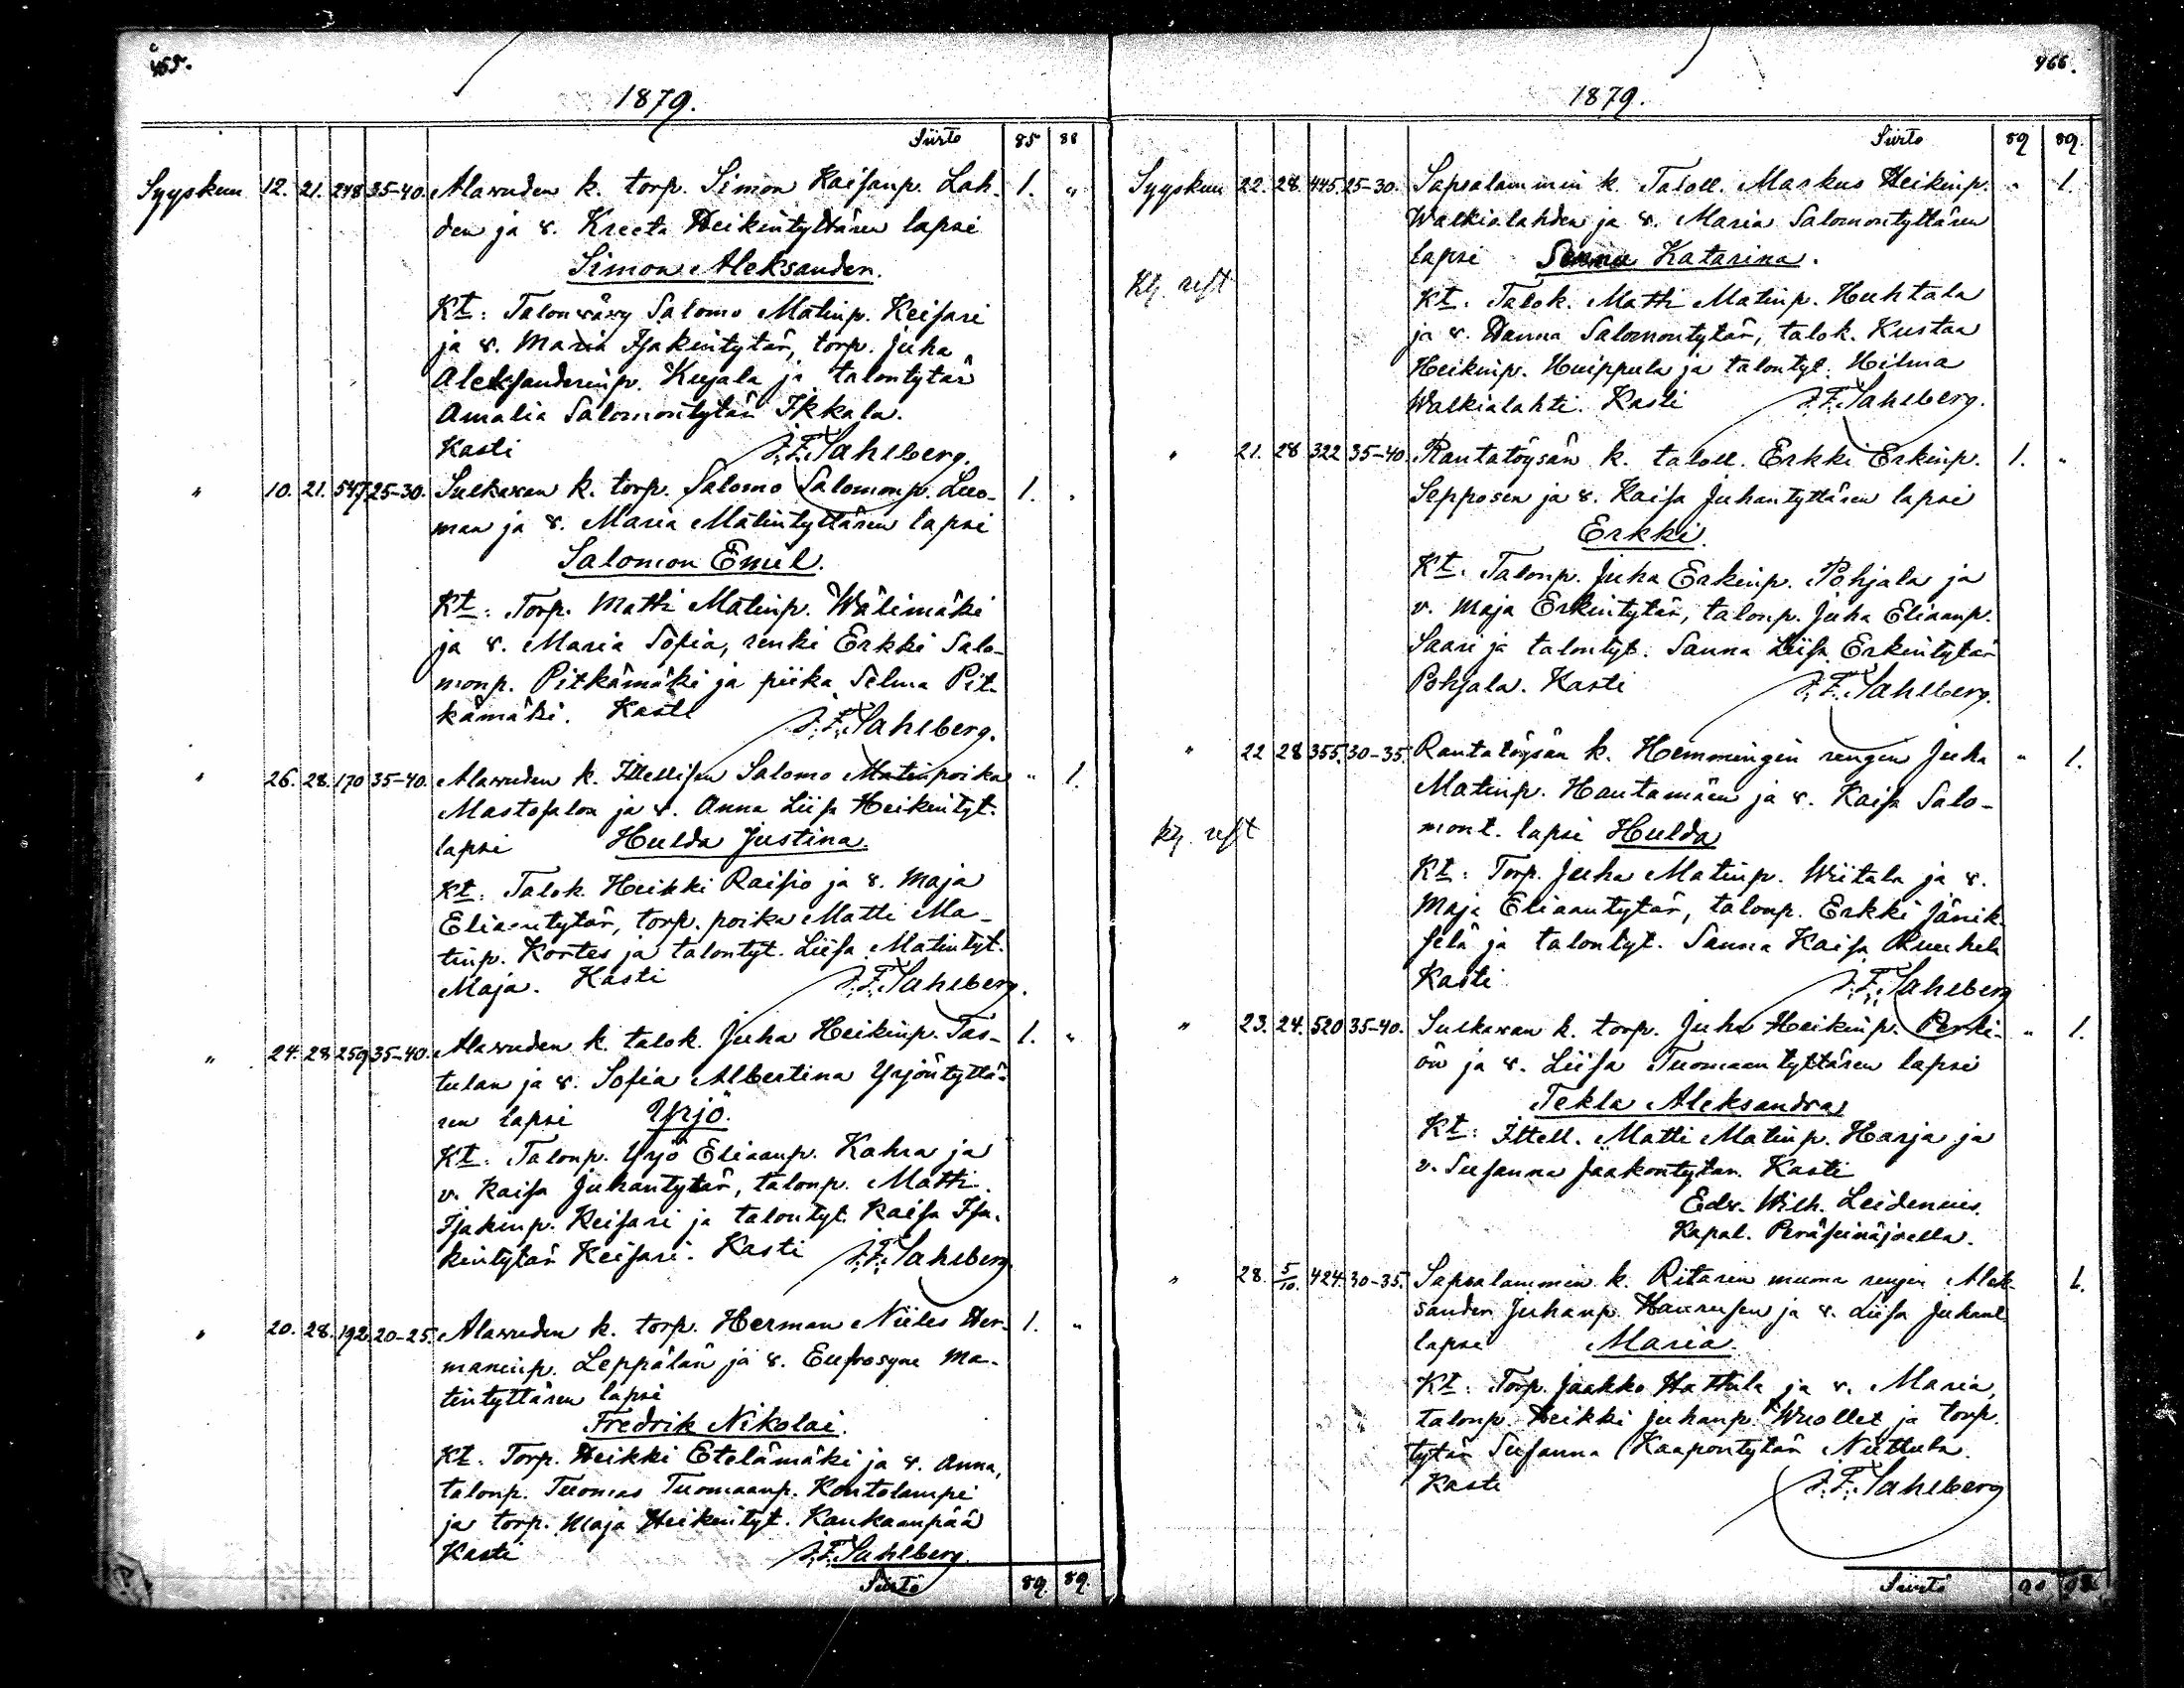 465.
1879.
Siirto 85 88
Syyskuu 12. 21. 248 35-40. Alawuden k. torp. Simon Kaisanp. Lah- 1. "
den ja v. Kreeta Heikintyttären lapsi
Simon Aleksander.
Kt: Talonväry Salomo Matinp. Keisari
ja v. Maria Isakintytär, torp. Juha
Aleksanderinp. Kujala ja talontytär
Amalia Salomontytär Ikkala.
Kasti J.F. Sahlberg.
" 10. 21. 547 25-30. Sulkavan k. torp. Salomo Salomonp. Luo- 1. "
man ja v. Maria Matintyttären lapsi
Salomon Emil.
Kt: Torp. Matti Matinp. Wälimäki
ja v. Maria Sofia, renki Erkki Salo-
monp. Pitkämäki ja piika Selma Pit-
kämäki. Kasti J.F. Sahlberg.
" 26. 28. 170 35-40. Alawuden k. Ittellisen Salomo Matinpoika " 1.
Mastosalon ja v. Anna Liisa Heikintyt.
lapsi Hulda Justina.
Kt: Talok. Heikki Raisio ja v. Maja
Eliaentytär, torp. poika Matti Ma-
tinp. Kortes ja talontyt. Liisa Matintyt.
Maja. Kasti J.F. Sahlberg.
" 24. 28. 259 35-40. Alawuden k. talok. Juha Heikinp. Tas- 1. "
tulan ja v. Sofia Albertina Yrjöntyttä-
ren lapsi Yrjö.
Kt: Talonp. Yrjö Eliaanp. Kahra ja
v. Kaisa Juhantytär, talonp. Matti
Isakinp. Keisari ja talontyt. Kaisa Isa-
kintytär Keisari. Kasti J.F. Sahlberg.
" 20. 28. 192. 20-25. Alawuden k. torp. Herman Niiles Her- 1. "
maninp. Leppälän ja v. Eufrosyne Ma-
tintyttären lapsi
Fredrik Nikolai.
Kt: Torp. Heikki Etelämäki ja v. Anna,
talonp. Tuomas Tuomaanp. Kontolampi
ja torp. Maja Heikintyt. Kaukaanpää
Kasti J.F. Sahlberg.
Siirto 89. 89.
466.
1879.
Siirto 89 89.
Syyskuu 22. 28. 445. 25-30. Sapsalammin k. Taloll. Markus Heikinp. " 1.
Walkialahden ja v. Maria Salomontyttären
lapsi Katarina.
Kt: Talok. Matti Matinp. Huhtala
ja v. Hanna Salomontytär, talok. Kustaa
Heikinp. Huippula ja talontyt. Hilma
Walkialahti. Kasti J.F. Sahlberg.
" 21. 28 322 35-40. Rantatöysän k. taloll. Erkki Erkinp. 1. "
Sepposen ja v. Kaisa Juhantyttären lapsi
Erkki.
Kt: Talonp. Juha Erkinp. Pohjala ja
v. Maja Erkintytär, talonp. Juha Eliaanp.
Saari ja talontyt. Sanna Liisa Erkintytär
Pohjala. Kasti J.F. Sahlberg.
" 22 28 355. 30-35. Rantatöysän k. Hemmingin rengin Juha " 1.
Matinp. Hautamäen ja v. Kaisa Salo-
mont. lapsi Hulda
Kt: Torp. Juha Matinp. Wiitala ja v.
Maja Eliaantytär, talonp. Erkki Jänik-
selä ja talontyt. Sanna Kaisa
Kasti J.F. Sahlberg
" 23. 24. 520 35-40. Sulkavan k. torp. Juha Heikinp. Perki- " 1.
ön ja v. Liisa Tuomaantyttären lapsi
Tekla Aleksandra
Kt: Ittell. Matti Matinp. Harja ja
v. Susanna Jaakontytär. Kasti
Edv. Wilh. Leidenius.
Kapal. Peräseinäjoella.
" 28. 5/10. 424. 30-35. Sapsalammin k. Ritarin muona rengin Alek- 1.
sander Juhanp. ja v. Liisa Juhant.
lapsi Maria.
Kt: Torp. Jaakko Hattula ja v. Maria,
talonp. Heikki Juhanp. Wuollet ja torp.
tytär Susanna Kaapontytär Niittula.
Kasti J.F. Sahlberg
Siirto 90